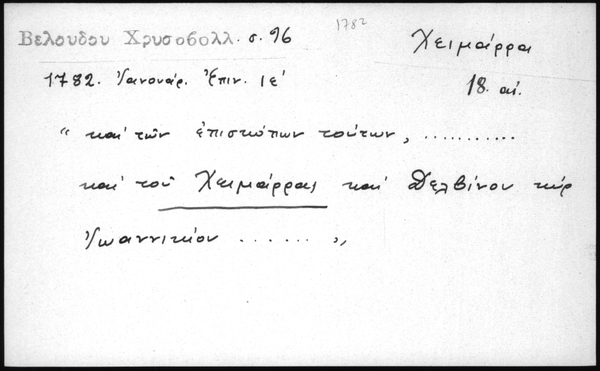 1782
Βελουδου Χρυσοβολλ. σ. 96
Χειμάρρα
1782. Ἰανουάρ. Ἐπιν. ιέ
18. αἰ.
“ καὶ τῶν ἐπισκόπων τούτων, ...........
καὶ τοῦ Χειμάρρας καὶ Δελβίνου κύρ
Ἰωαννικίου ...... „